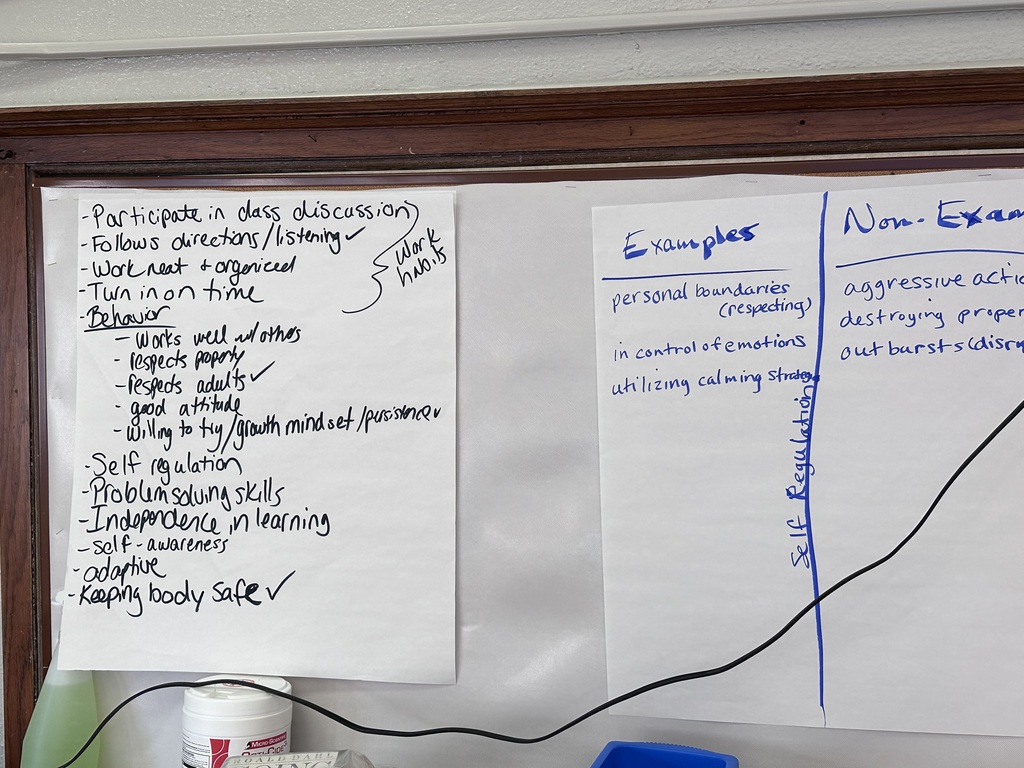 -Participate in class discussion
-Follows directions/listening ✓
-Work neat + organized
-Turn in on time
work habits
-Behavior
- Works well w/others
- respects property
- respects adults ✓
- good attitude
- willing to try/growth mindset/persistence ✓
-Self regulation
-Problem solving skills
-Independence in learning
- self-awareness
- adaptive
-Keeping body safe ✓
Examples
personal boundaries
(respecting)
in control of emotions
utilizing calming
Self Regulation
Non-Exam
aggressive actio
destroying proper
outbursts (disru
MICRO-SCIENTIFIC
OPTI-CIDE
ROALD DAHL